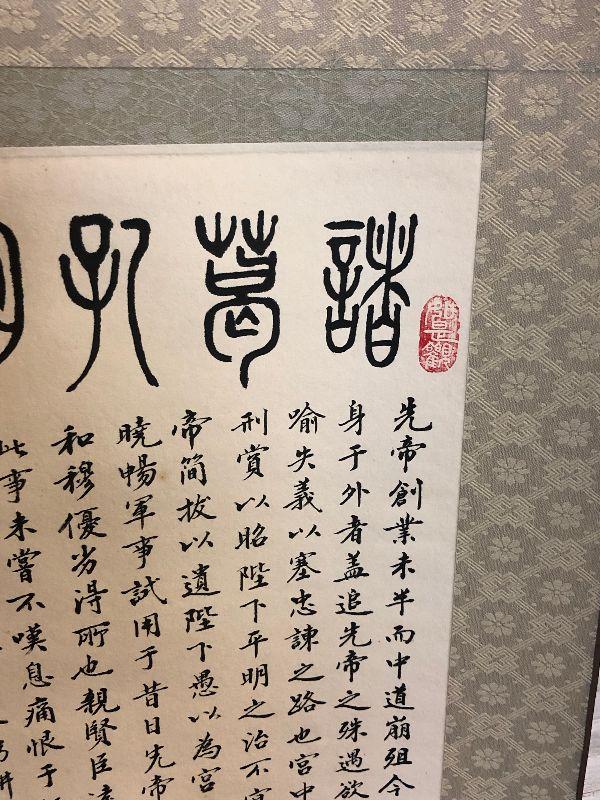 諸葛孔明
先帝創業未半而中道崩殂今
身于外者盖追先帝之殊遇欲
喻失義以塞忠諫之路也宮中
刑賞以昭陛下平明之治不宜
帝簡拔以遺陛下愚以為宮
曉暢軍事試用于昔日先帝
和穆優劣得所也親賢臣遠
此事未嘗不嘆息痛恨于桓